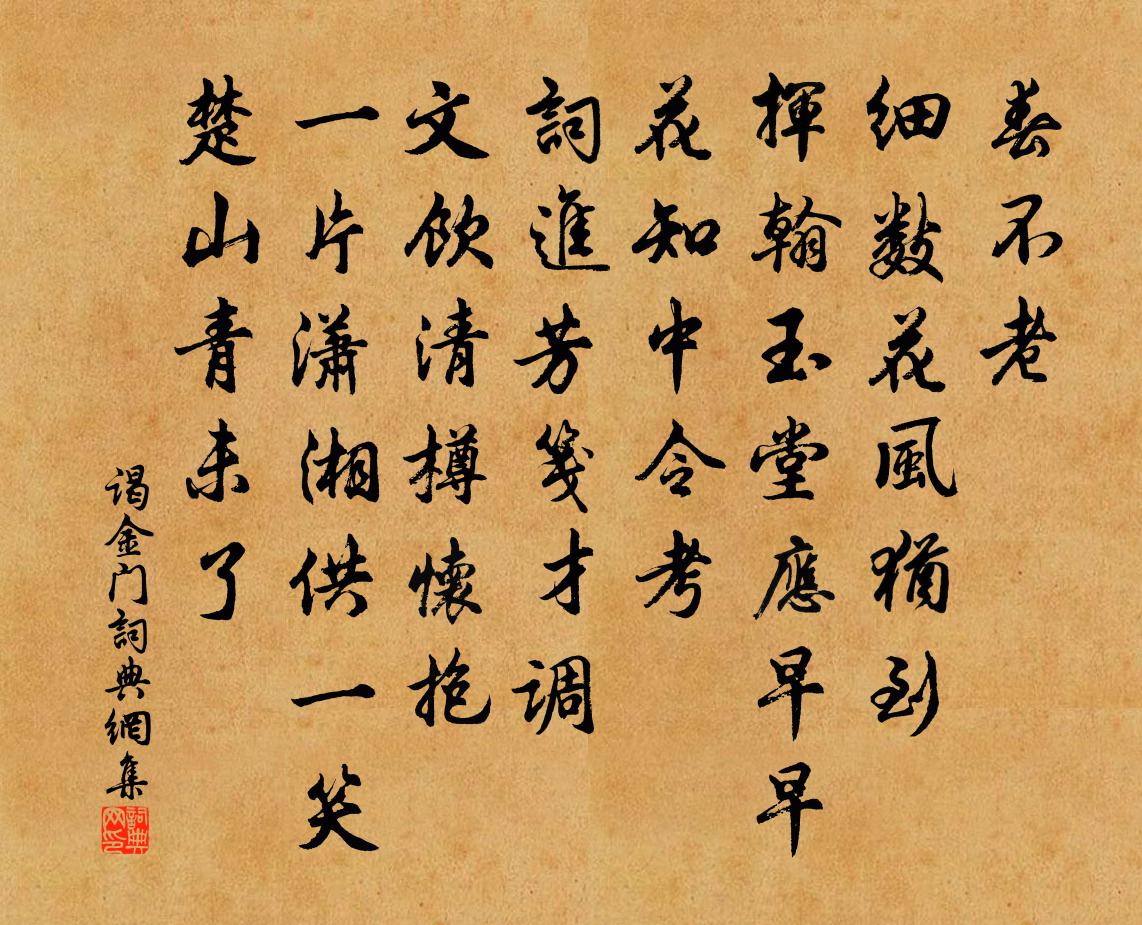 春不老
细數花風猶到
揮翰玉堂應早早
花知中令考
詞進芳箋才調
文飲清樽懷抱
一片瀟湘供一笑
楚山青未了
谒金门詞典網集
詞典网印